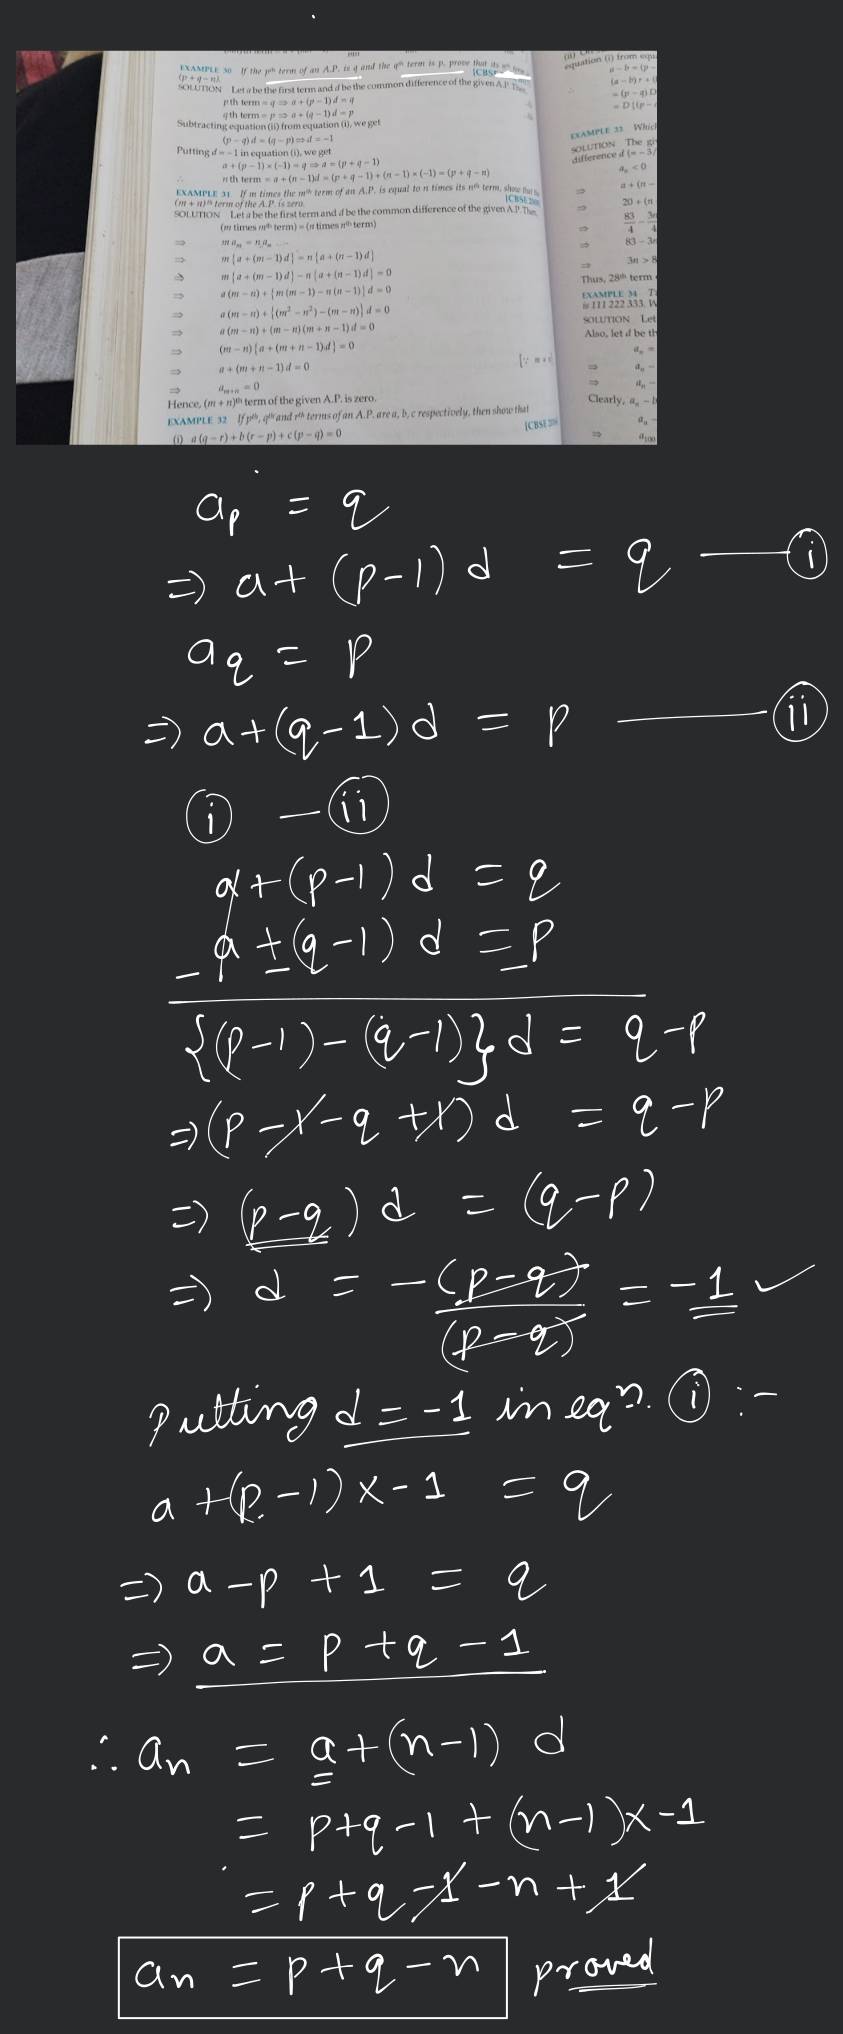 EXAMPLE 30 If the pth term of an A.P. is q and the qth term is p, prove that its nth term
(p + q – n). [CBSE
SOLUTION Let a be the first term and d be the common difference of the given A.P. Then,
pth term = q ⇒ a + (p – 1) d = q
qth term = p ⇒ a + (q – 1) d = p
Subtracting equation (ii) from equation (i), we get
(p – q) d = (q – p) ⇒ d = –1
Putting d = –1 in equation (i), we get
a + (p – 1) × (–1) = q ⇒ a = (p + q – 1)
∴ nth term = a + (n – 1) d = (p + q – 1) + (n – 1) × (–1) = (p + q – n)
EXAMPLE 31 If m times the mth term of an A.P. is equal to n times its nth term, show that
(m + n)th term of the A.P. is zero. [CBSE
SOLUTION Let a be the first term and d be the common difference of the given A.P. Then,
(m times mth term) = (n times nth term)
⇒ m am = n an
⇒ m {a + (m – 1) d} = n {a + (n – 1) d}
⇒ m {a + (m – 1) d} – n {a + (n – 1) d} = 0
⇒ a (m – n) + {m (m – 1) – n (n – 1)} d = 0
⇒ a (m – n) + {(m² – n²) – (m – n)} d = 0
⇒ a (m – n) + (m – n) (m + n – 1) d = 0
⇒ (m – n) {a + (m + n – 1) d} = 0
⇒ a + (m + n – 1) d = 0
⇒ am+n = 0
Hence, (m + n)th term of the given A.P. is zero.
EXAMPLE 32 If pth, qth and rth terms of an A.P. are a, b, c respectively, then show that
(i) a (q – r) + b (r – p) + c (p – q) = 0 [CBSE
equation (i) from
a – b = (p –
(a – b) r +
= (p – q) D
EXAMPLE 33 Which
SOLUTION The
difference d (= – 3/
an < 0
⇒ a + (n –
⇒ 20 + (n
⇒ 83/4 –
⇒ 83 – 3n
⇒ 3n > 8
Thus, 28th term
EXAMPLE 34
is 111 222 333.
SOLUTION Let
Also, let d be th
an =
⇒ an –
⇒ an –
Clearly, an –
an –
⇒ a100
ap = q
⇒ a + (p-1) d = q — (i)
aq = p
⇒ a + (q-1) d = p — (ii)
(i) - (ii)
a + (p-1) d = q
- a ± (q-1) d = - p
{(p-1) - (q-1)} d = q - p
⇒ (p - 1 - q + 1) d = q - p
⇒ (p-q) d = (q-p)
⇒ d = -(p-q)/(p-q) = -1 ✓
Putting d = -1 in eqn. (i) :-
a + (p-1) x -1 = q
⇒ a - p + 1 = q
⇒ a = p + q - 1
∴ an = a + (n-1) d
= p+q-1 + (n-1) x -1
= p + q - 1 - n + 1
an = p + q - n proved